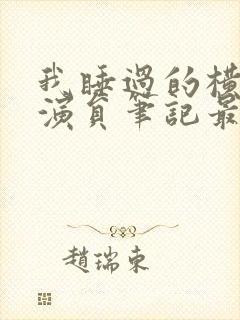 我睡過的橫
演員筆記最
趙瑞東